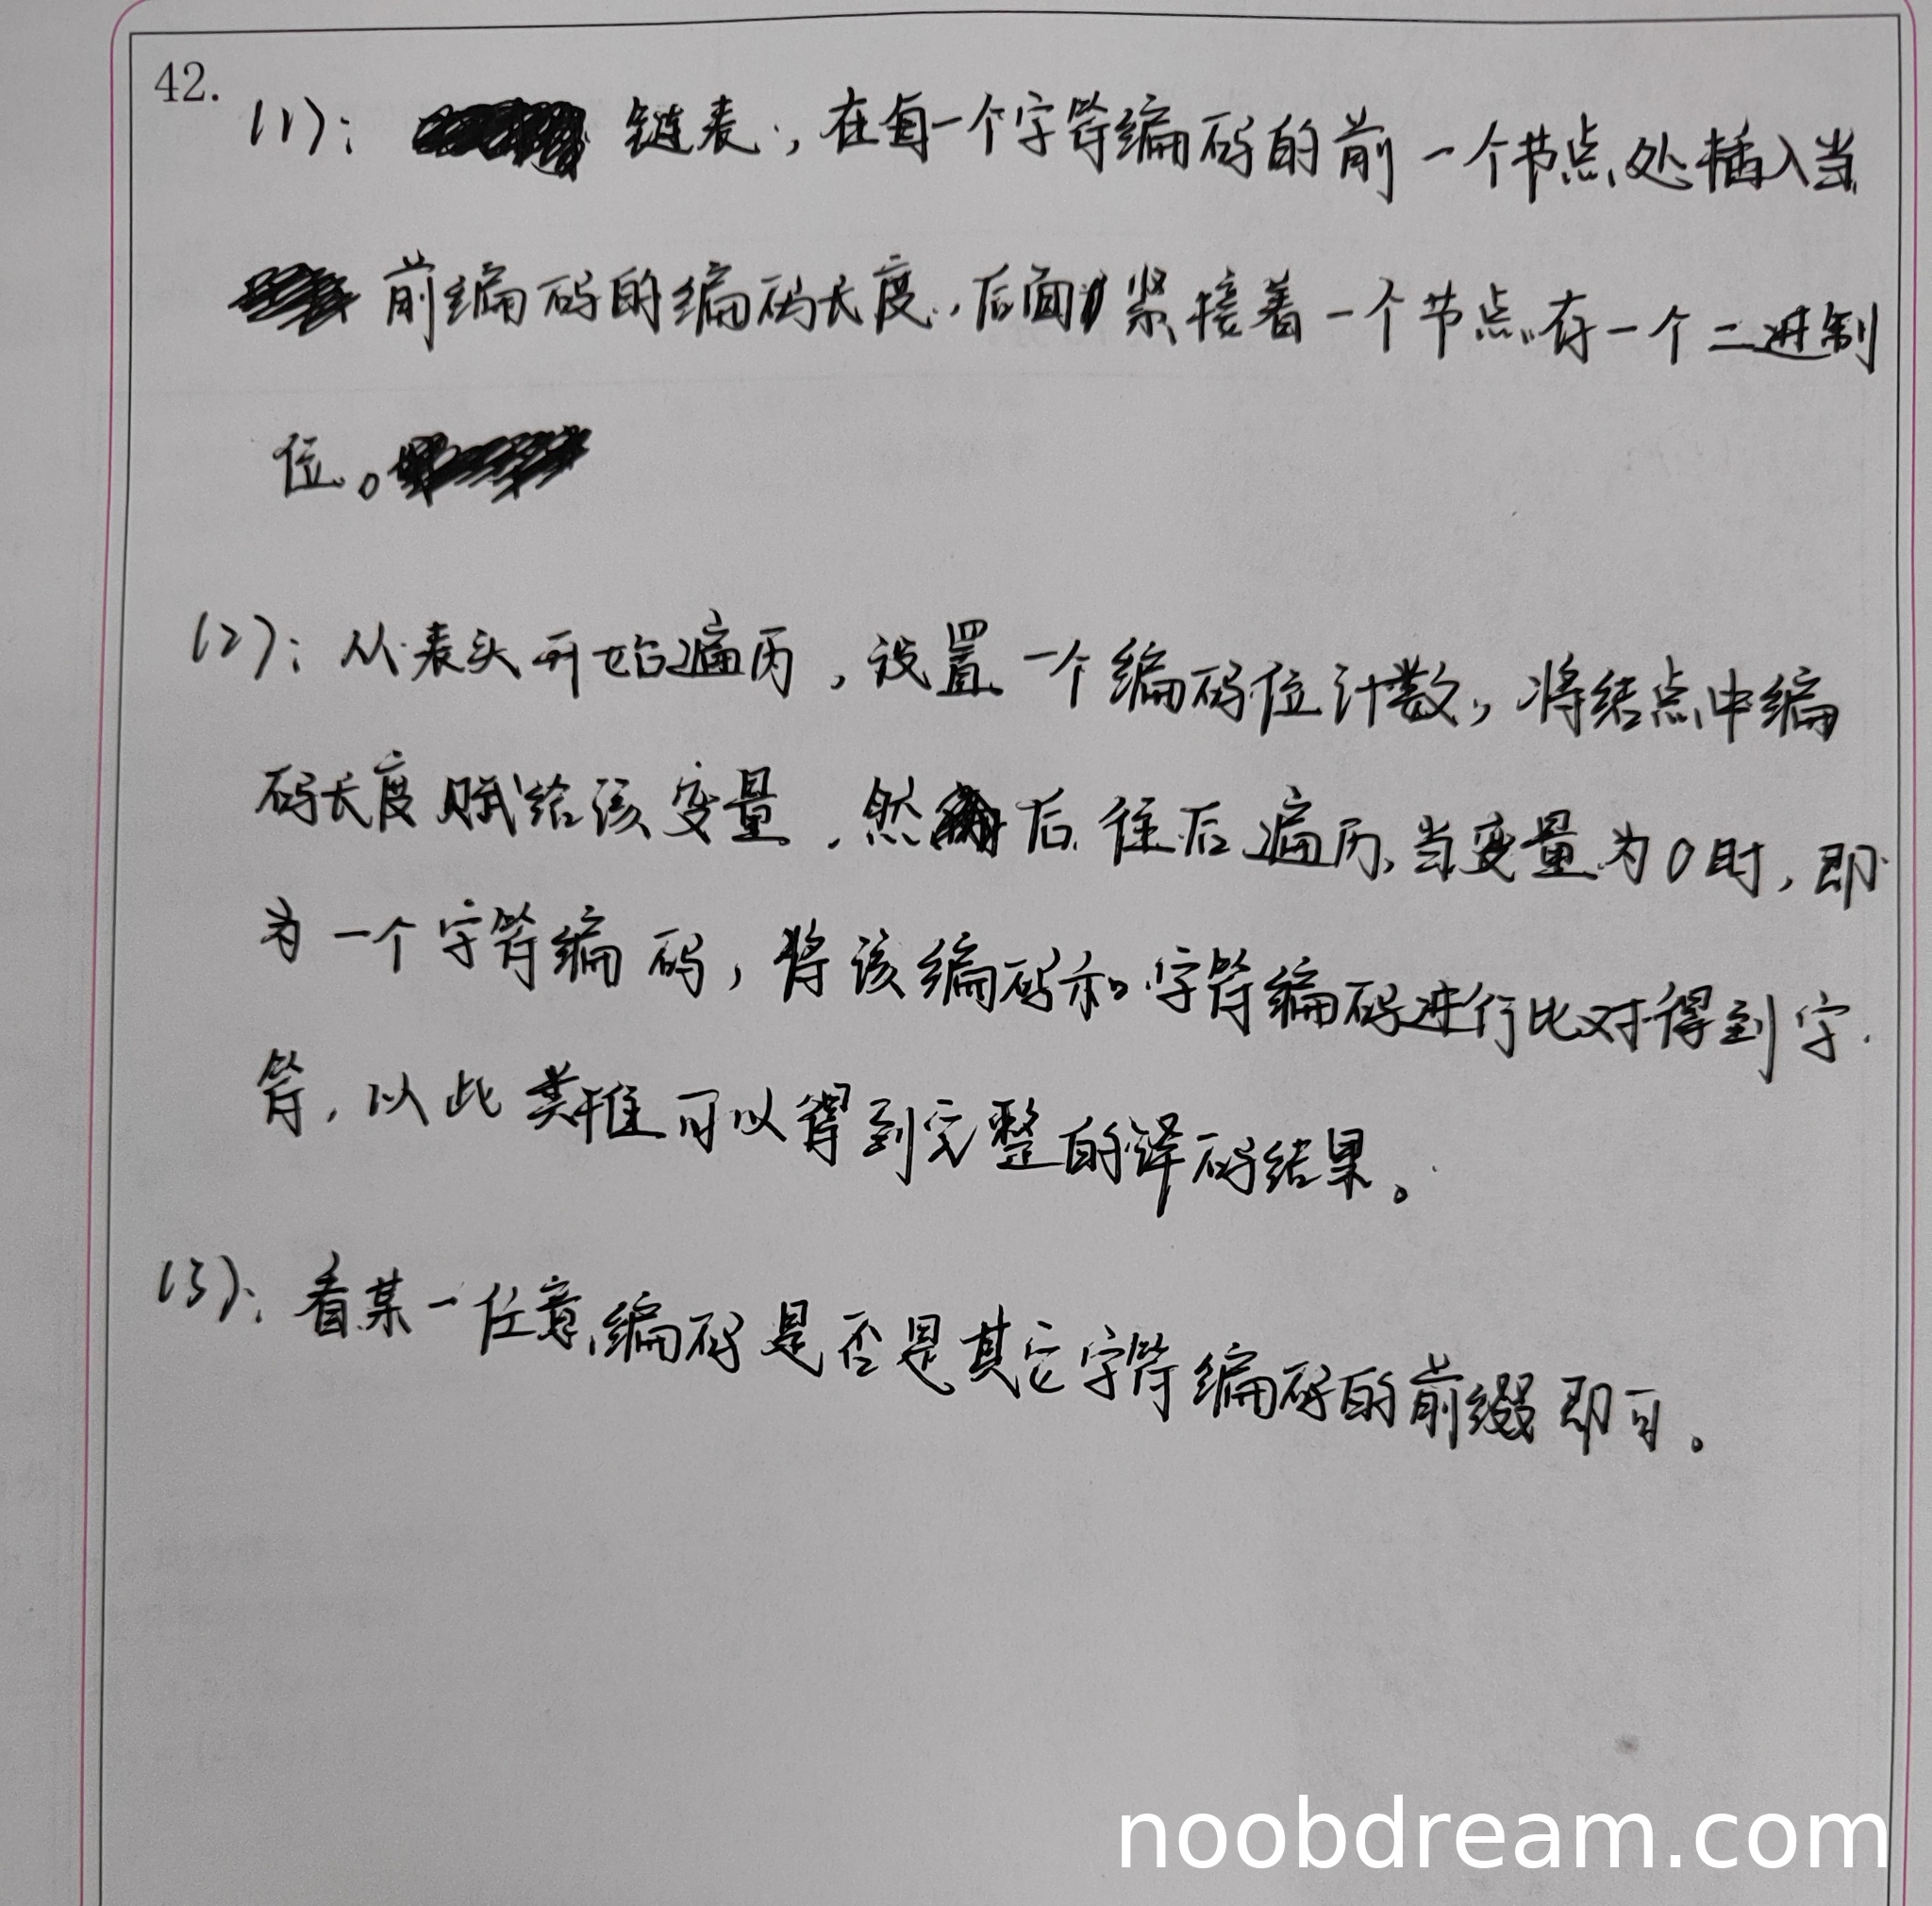 42.
(1): 链表, 在每一个字符编码的前一个节点处插入当
前编码的编码长度, 后面紧接着一个节点存一个二进制
位。
(2): 从表头开始遍历, 设置一个编码位计数, 将结点中编
码长度赋给该变量, 然后往后遍历, 当变量为0时, 即
为一个字符编码, 将该编码和字符编码进行比对得到字
符, 以此类推可以得到完整的译码结果。
(3): 看某一任意编码是否是其它字符编码的前缀即可。
noobdream.com